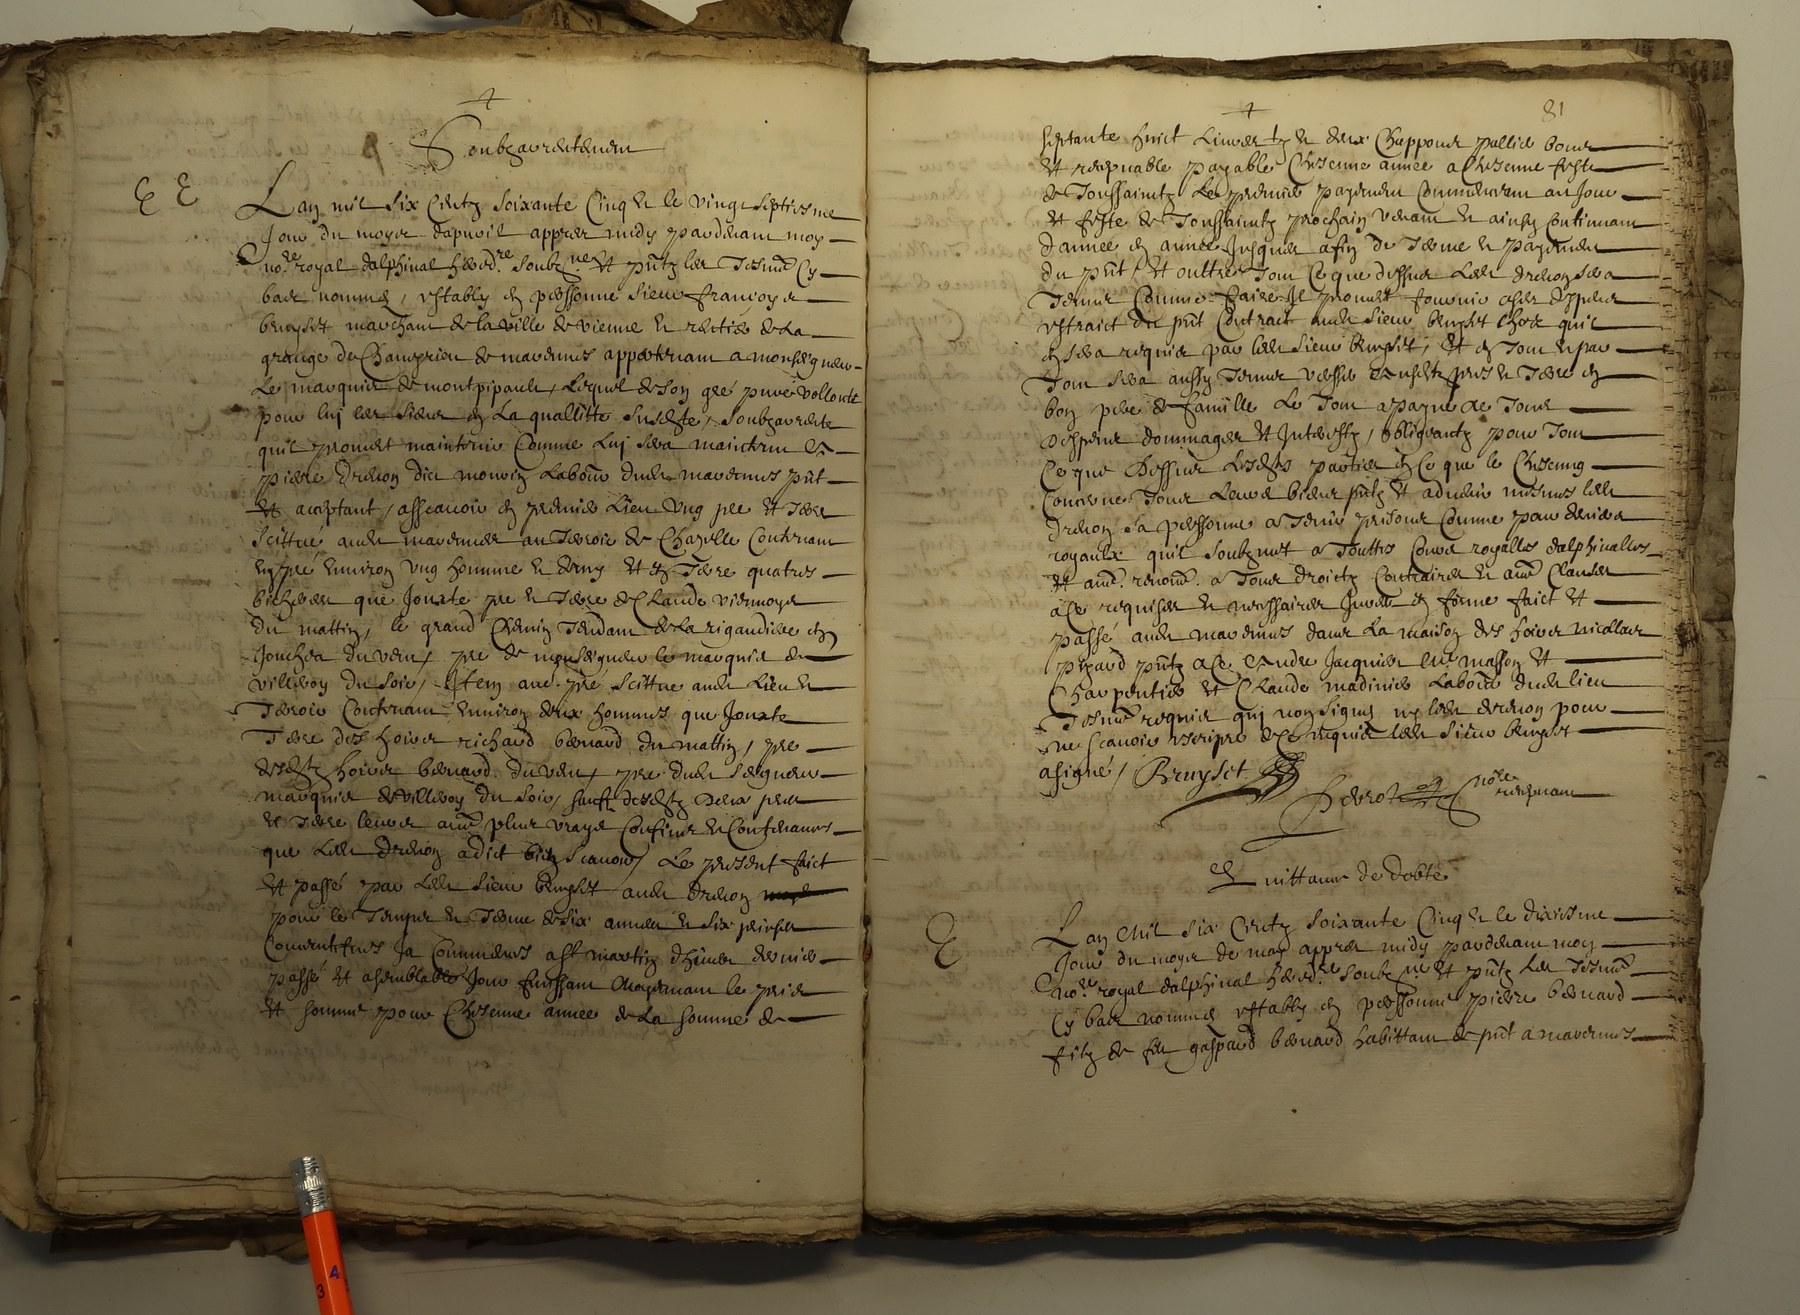 Soubzarrentement
E E
Lan mil six centz soixante cinq et le vingt septiesme
Jour du moys dapvril appres midy pardevant moy
no.re royal dalphinal hered.re soubz.ne et pñtz les tesm.
bas nommes, estably en personne sieur françoys
bruyset marchant de la ville de vienne et rentier de la
grange de Champrieu de marennes appartenant a monseigneur
Le marquis de montpipault, lequel de son gré pure vollonté
pour luy les siens en la quallitte susdite, soubzarrente
quil promet maintenir comme luy sera maintenu a
pierre drevon dict mouvin Labour. dudt marennes pñt
et acceptant, asscavoir en premier lieu ung pre et terre
scittué audt marennes au terroir de Chapelle Contenant
en pré environ ung homme et demy et en terre quatres
bicheres que Jouxte pre et terre de Claude viennoys
du mattin, le grand chemin tendant de la rigaudiere en
du vent, pre de monseigneur le marquis de
villeroy du soir, Item aut. pré scittue audt lieu et
terroir Contenant environ deux hommes que Jouxte
terre des hoirs richard bernard du mattin, pre
desdtz hoirs bernard du vent, pre dudt seigneur
marquis de villeroy du soir, sauf desdtz deux pres
et terre leurs aut. plus vrays confins et contenances
que ledt drevon a dict bien scavoir, Le present faict
et passé par ledt sieur bruyset audt drevon
pour le temps et terme de six annees et six prinses
Consecutives Ja commences a st martin dhiver dernier
passé et a semblable Jour finissant moyenant le pris
et somme pour chescune annee de la somme de
81
septante huict Livres tz et deux Chappons pallie bons
et recepvable payable chescune annee a chescune feste
de Toussaintz Le premier payement Commencera au Jour
et feste de Toussaintz prochain venant et ainsy continuant
dannee en annee Jusques a fin de terme et payement
du pñt, et oultre tout ce que dessus ledt drevon sera
tenus comme faire il promet fournir a ses despens
extraict du pñt contract audt sieur bruyset lhors quil
en sera requis par ledt sieur bruyset, et en tout et par
tout sera aussy tenus verser esdtz pres et terre en
bon pere de famille le tout a payne de tous
despens dommages et Interestz, obligeantz pour tout
Ce que dessus lesdts parties en ce que le chescung
concerne tous leurs biens pñtz et advenir mesmes ledt
drevon sa personne a tenir prisons comme pour deniers
royaulx quil soubzmet a touttes cours royalles dalphinalles
et aut. renonc. a tous droictz contraires et aut. clauses
a ce requises et necessaires Juré en forme faict et
passé audt marennes dans la maison des hoirs nicollas
pigard pñtz a ce andre Jacquier mr masson et
charpentier et Claude madinier Labour. dudt lieu
tesm. requis quy non signes ny ledt drevon pour
ne scavoir escripre de ce requis ledt sieur bruyset
a signé, Bruyset
no.re
recepvant
Quittance de dobte
E
Lan Mil six centz soixante cinq et le dixiesme
Jour du moys de may appres midy pardevant moy
no.re royal dalphinal hered.re soubz.ne et pñtz les tesm.
Cy bas nommes estably en personne pierre bernard
filz de feu gaspard bernard habittant de pñt a marennes